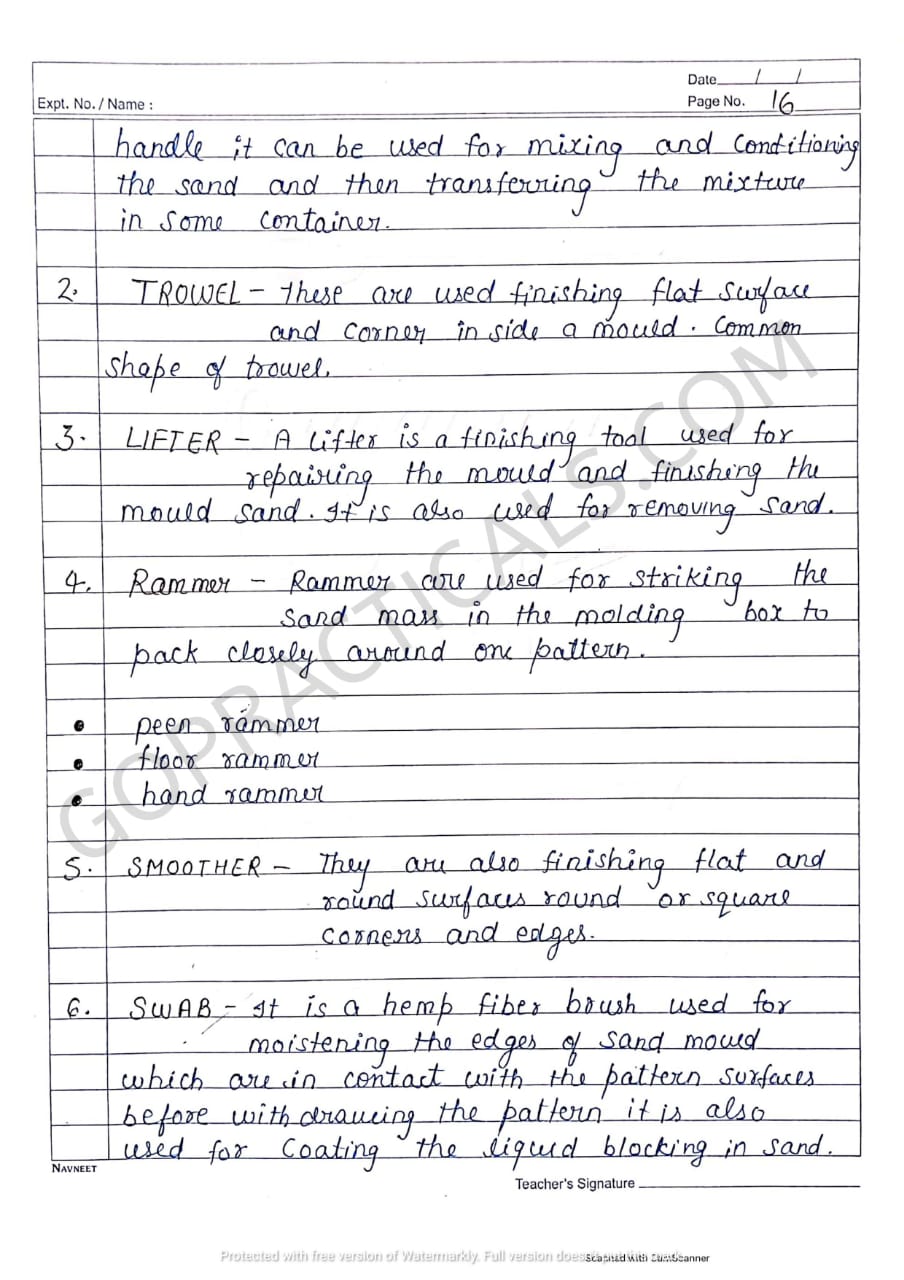 Date / /
Expt. No. / Name :
Page No. 16
handle it can be used for mixing and conditioning
the sand and then transferring the mixture
in some container.
2. TROWEL - These are used finishing flat surface
and corner in side a mould. Common
shape of trowel.
3. LIFTER - A lifter is a finishing tool used for
repairing the mould and finishing the
mould sand. It is also used for removing sand.
4. Rammer - Rammer are used for striking the
sand mass in the molding box to
pack closely around one pattern.
• peen rammer
• floor rammer
• hand rammer
5. SMOOTHER - They are also finishing flat and
round surfaces round or square
corners and edges.
6. SWAB - It is a hemp fiber brush used for
moistening the edges of sand mould
which are in contact with the pattern surfaces
before withdrawing the pattern it is also
used for coating the liquid blocking in sand.
NAVNEET
Teacher's Signature
GOPRACTICALS.COM
Protected with free version of Watermarkly. Full version doesn't put this mark.
Scanned with CamScanner